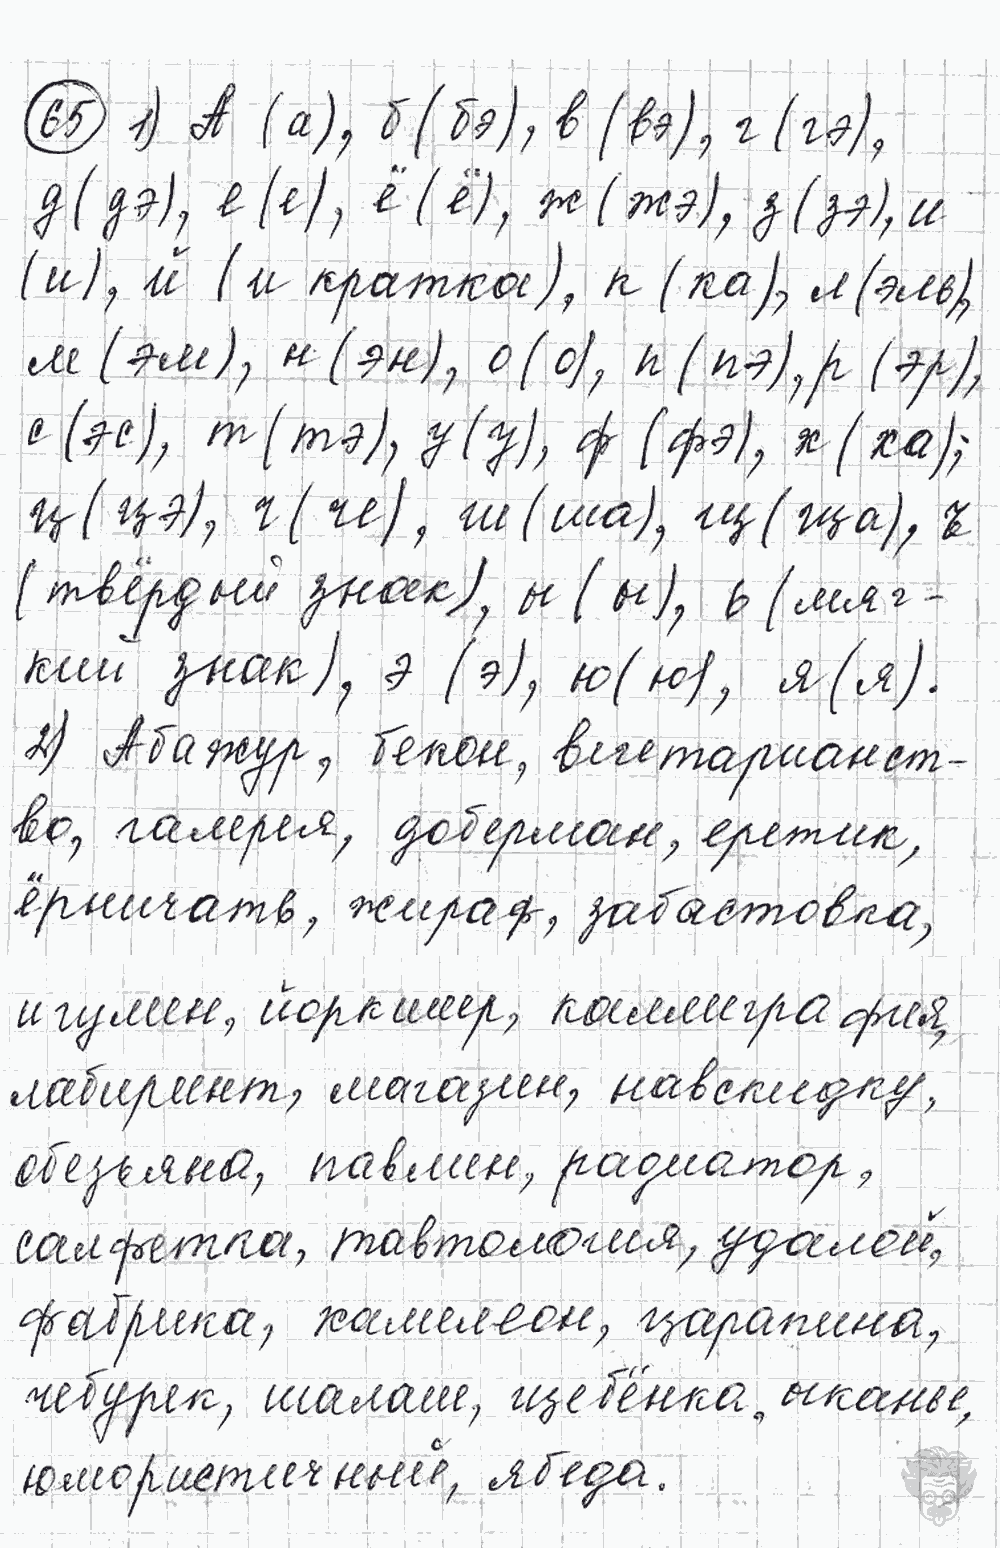 65 1) А (а), б (бэ), в (вэ), г (гэ),
д (дэ), е (е), ё (ё), ж (жэ), з (зэ), и
(и), й (и кратка), к (ка), л (эль),
м (эм), н (эн), о (о), п (пэ), р (эр),
с (эс), т (тэ), у (у), ф (фэ), х (ха);
ц (цэ), ч (че), ш (ша), щ (ща), ъ
(твёрдый знак), ы (ы), ь (мяг-
кий знак), э (э), ю (ю), я (я).
2) Абажур, бекон, вегетарианст-
во, галерея, доберман, еретик,
ёрничать, жираф, забастовка,
игумен, йоркшир, каллиграфия,
лабиринт, магазин, навскидку,
обезьяна, павлин, радиатор,
салфетка, тавтология, удалой,
фабрика, хамелеон, царапина,
чебурек, шалаш, щебёнка, ыканье,
юмористичный, ябеда.